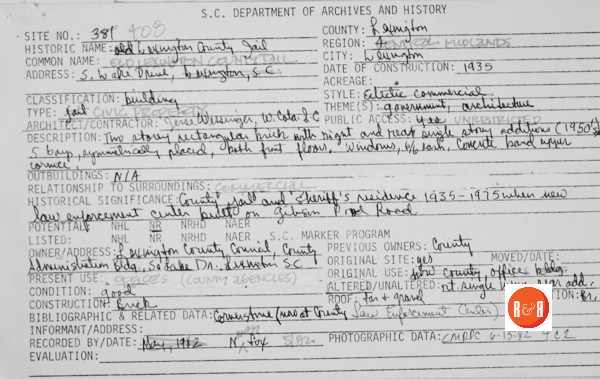 S.C. DEPARTMENT OF ARCHIVES AND HISTORY
SITE NO.: 381 408
COUNTY: Lexington
HISTORIC NAME: old Lexington County Jail
REGION: Central Midlands
COMMON NAME: OLD LEXINGTON COUNTY JAIL
CITY: Lexington
ADDRESS: S. Lake Drive, Lexington, S.C.
DATE OF CONSTRUCTION: 1935
ACREAGE:
CLASSIFICATION: building
STYLE: Eclectic commercial
TYPE: jail CIVIC PROPERTY
THEME(S): government, architecture
ARCHITECT/CONTRACTOR: Jesse Wessinger, W. Cola. S.C.
PUBLIC ACCESS: yes UNRESTRICTED
DESCRIPTION: Two story rectangular brick with right and rear single story additions (1950's)
5 bays, symmetrically placed, both front floors. Windows, 6/6 sash, Concrete band upper
cornice
OUTBUILDINGS: N/A
RELATIONSHIP TO SURROUNDINGS: COMMERCIAL
HISTORICAL SIGNIFICANCE: County jail and sheriff's residence 1935-1975 when new
law enforcement center built on Gibson Pond Road
POTENTIAL NHL NR NRHD NAER
LISTED: NHL NR NRHD NAER S.C. MARKER PROGRAM
OWNER/ADDRESS: Lexington County Council, County
PREVIOUS OWNERS: County
Administration Bldg., So. Lake Dr. Lexington, S.C.
ORIGINAL SITE: yes MOVED/DATE:
PRESENT USE: OFFICES (COUNTY AGENCIES)
ORIGINAL USE: now county office bldg.
CONDITION: good
ALTERED/UNALTERED: rt. single wing, rear add.
CONSTRUCTION: Brick
ROOF: tar & gravel
BIBLIOGRAPHIC & RELATED DATA: Cornerstone (now at County Law Enforcement Center)
INFORMANT/ADDRESS:
RECORDED BY/DATE: May, 1982 N. Fox 5/82
PHOTOGRAPHIC DATA: CMRPC 6-15-82
EVALUATION:
R&R